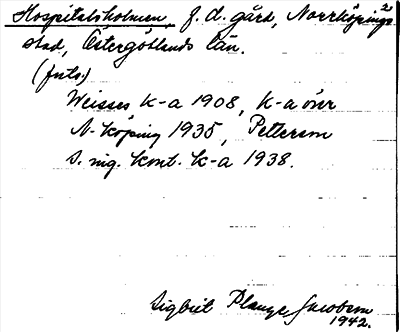 Hospitalsholmen, f. d. gård, Norrköpings 2
stad, Östergötlands län.
(forts.)
Weisses k-a 1908, k-a över
N-köping 1935, Petterson
S. ng. komb. k-a 1938.
Sigbrit Plange Jacobson
1942.